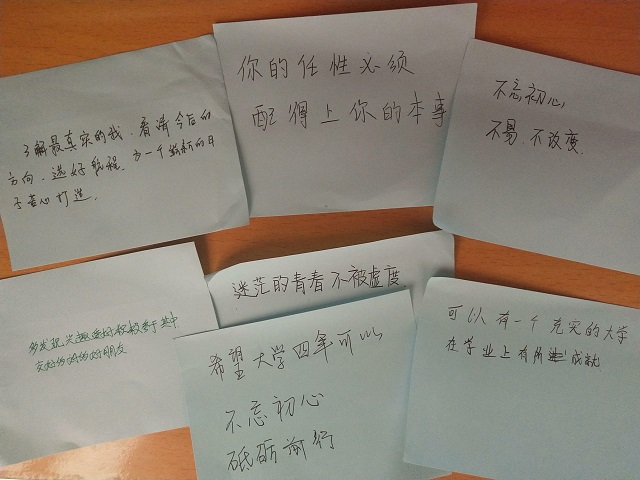 了解最真实的我.看清今后的
方向.选好航程.为一个崭新的日
子志心打造.
你的任性必须
配得上你的本事
不忘初心
不易.不改变.
多发现兴趣爱好积极
交好的好朋友
迷茫的青春不被虚度
希望大学四年可以
不忘初心
砥砺前行
可以有一个充实的大学
在学业上有所成就